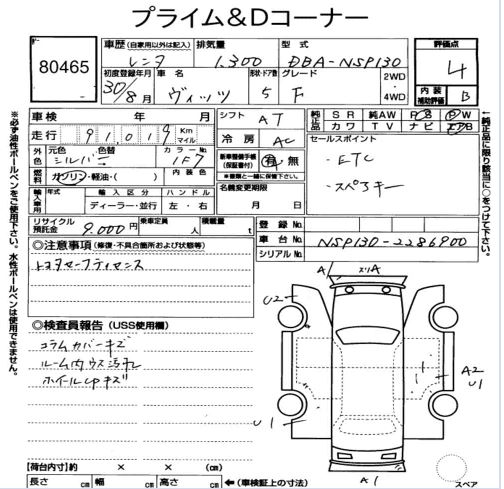 プライム&Dコーナー
80465
車歴 (自家用以外は記入) 排気量 型式
レンタ 1,300 DBA-NSP130
初度登録年月 車名 形状・ドア数 グレード
30/8月 ヴィッツ 5 F
2WD
4WD
評価点
4
内装補助評価 B
車検 年 月 シフト AT
走行 91,019 Km マイル 冷房 AC
外色 元色 色替 カラーNo.
シルバー 1F7
内装色
燃料 ガソリン・軽油・( )
輸入車用 年式 輸入区分 ハンドル
ディーラー・並行 左・右
新車整備手帳(保証書付) 有 無
※書類と一緒に保管
名義変更期限
月 日
純正品 SR 純AW PS PW
カワ TV ナビ エアB
セールスポイント
・ETC
・スペアキー
←純正品に限り該当に○をつけて下さい。
※必ず油性ボールペンをご使用下さい。水性ボールペンは使用できません。
リサイクル預託金 9,000円 乗車定員 人 積載量 t
登録No.
車台No. NSP130-2286900
シリアルNo.
◎注意事項 (修復・不具合箇所および状態等)
トヨタセーフティセンス
◎検査員報告 (USS使用欄)
コラムカバーキズ
ルーム内ウス汚れ
ホイールcpキズ
A1 スリA
U2
A2
U1
U1
A1
スペア
【荷台内寸】約 × × (cm)
長さ cm 幅 cm 高さ cm ←(車検証上の寸法)